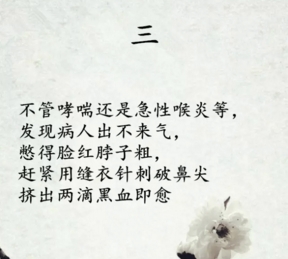 三
不管哮喘还是急性喉炎等，
发现病人出不来气，
憋得脸红脖子粗，
赶紧用缝衣针刺破鼻尖
挤出两滴黑血即愈